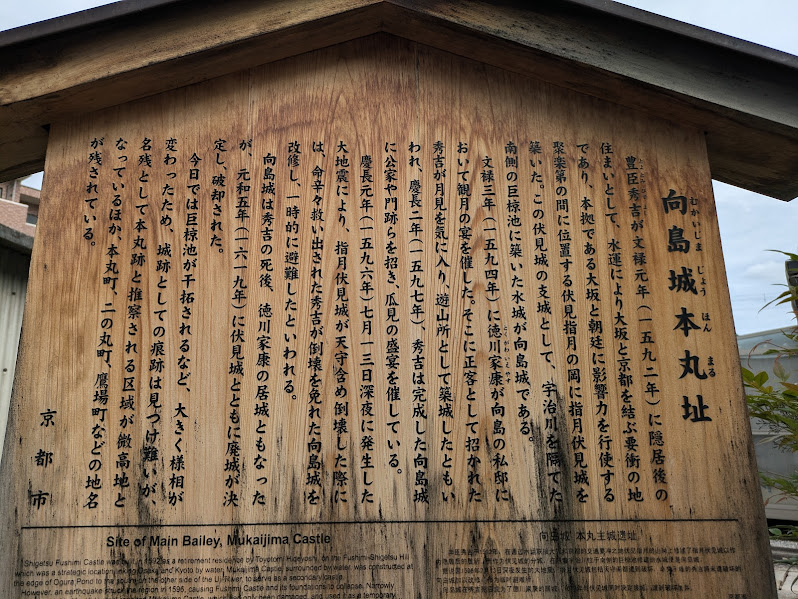 向島城本丸址
むかいじま じょう ほん まる
豊臣秀吉が文禄元年(一五九二年)に隠居後の
住まいとして、水運により大坂と京都を結ぶ要衝の地
であり、本拠である大坂と朝廷に影響力を行使する
聚楽第の間に位置する伏見指月の岡に指月伏見城を
築いた。この伏見城の支城として、宇治川を隔てた
南側の巨椋池に築いた水城が向島城である。
文禄三年(一五九四年)に徳川家康が向島の私邸に
とくがわいえやす
おいて観月の宴を催した。そこに正客として招かれた
秀吉が月見を気に入り、遊山所として築城したともい
われ、慶長二年(一五九七年)、秀吉は完成した向島城
に公家や門跡らを招き、瓜見の盛宴を催している。
慶長元年(一五九六年)七月一三日深夜に発生した
大地震により、指月伏見城が天守含め倒壊した際に
は、命辛々救い出された秀吉が倒壊を免れた向島城を
改修し、一時的に避難したといわれる。
向島城は秀吉の死後、徳川家康の居城ともなった
が、元和五年(一六一九年)に伏見城とともに廃城が決
定し、破却された。
今日では巨椋池が干拓されるなど、大きく様相が
変わったため、城跡としての痕跡は見つけ難いが、
名残として本丸跡と推察される区域が微高地と
なっているほか、本丸町、二の丸町、鷹場町などの地名
が残されている。
京都市
Site of Main Bailey, Mukaijima Castle
Shigetsu Fushimi Castle was built in 1592 as a retirement residence by Toyotomi Hideyoshi, on the Fushimi-Shigetsu Hill
which was a strategic location linking Osaka and Kyoto by water. Mukaijima Castle, surrounded by water, was constructed at
the edge of Ogura Pond to the south on the other side of the Uji River, to serve as a secondary castle.
However, an earthquake struck the region in 1596, causing Fushimi Castle and its foundations to collapse. Narrowly
向島城 本丸主城遺址